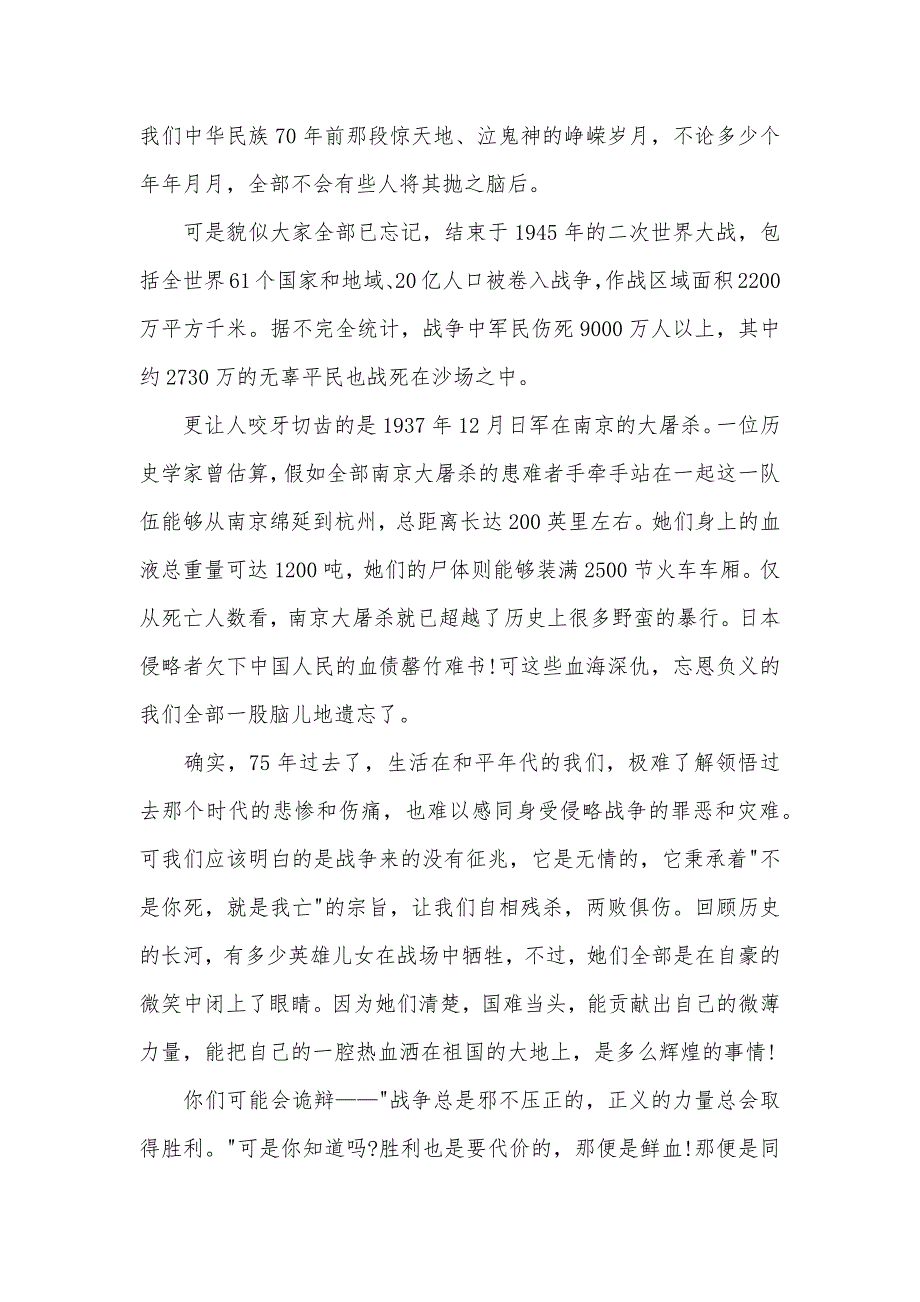 我们中华民族 70 年前那段惊天地、泣鬼神的峥嵘岁月，不论多少个
年年月月，全部不会有些人将其抛之脑后。
可是貌似大家全部已忘记，结束于 1945 年的二次世界大战，包
括全世界 61 个国家和地域、20 亿人口被卷入战争，作战区域面积 2200
万平方千米。据不完全统计，战争中军民伤死 9000 万人以上，其中
约 2730 万的无辜平民也战死在沙场之中。
更让人咬牙切齿的是 1937 年 12 月日军在南京的大屠杀。一位历
史学家曾估算，假如全部南京大屠杀的患难者手牵手站在一起这一队
伍能够从南京绵延到杭州，总距离长达 200 英里左右。她们身上的血
液总重量可达 1200 吨，她们的尸体则能够装满 2500 节火车车厢。仅
从死亡人数看，南京大屠杀就已超越了历史上很多野蛮的暴行。日本
侵略者欠下中国人民的血债罄竹难书!可这些血海深仇，忘恩负义的
我们全部一股脑儿地遗忘了。
确实，75 年过去了，生活在和平年代的我们，极难了解领悟过
去那个时代的悲惨和伤痛，也难以感同身受侵略战争的罪恶和灾难。
可我们应该明白的是战争来的没有征兆，它是无情的，它秉承着"不
是你死，就是我亡"的宗旨，让我们自相残杀，两败俱伤。回顾历史
的长河，有多少英雄儿女在战场中牺牲，不过，她们全部是在自豪的
微笑中闭上了眼睛。因为她们清楚，国难当头，能贡献出自己的微薄
力量，能把自己的一腔热血洒在祖国的大地上，是多么辉煌的事情!
你们可能会诡辩——"战争总是邪不压正的，正义的力量总会取
得胜利。"可是你知道吗?胜利也是要代价的，那便是鲜血!那便是同